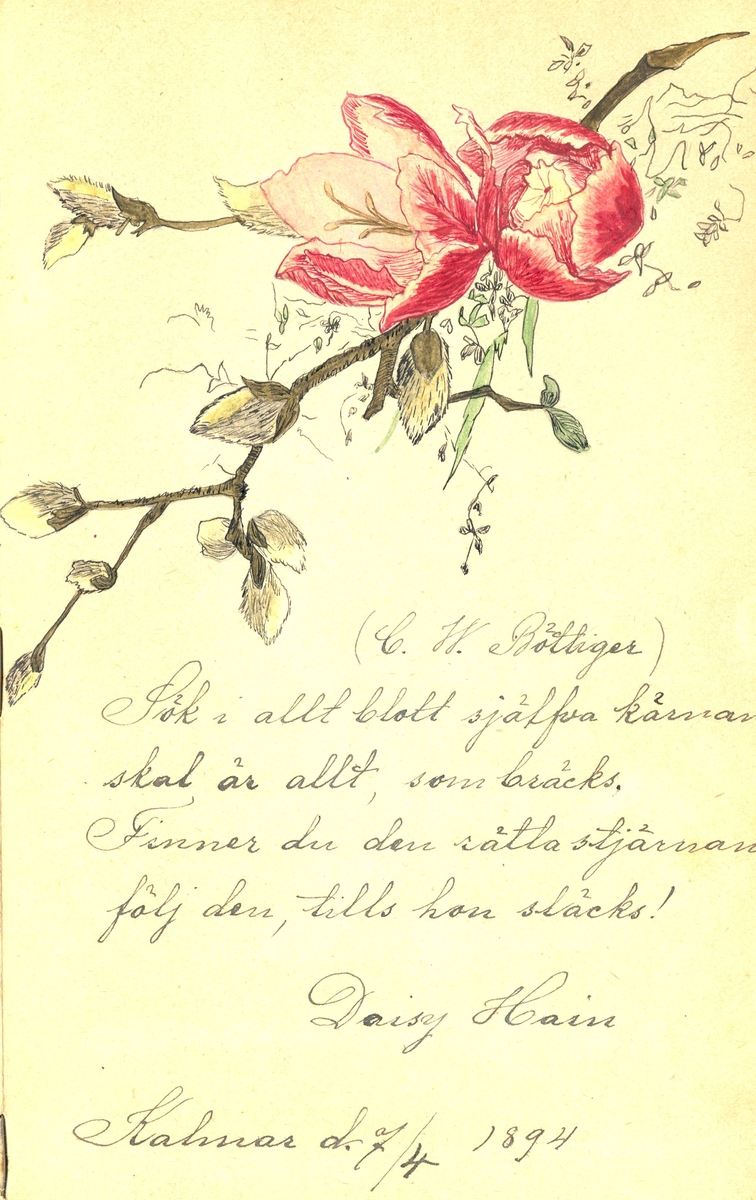 (C. W. Böttiger)
Sök i allt blott sjelfva kärnan
skal är allt, som bräcks.
Finner du den rätta stjärnan
följ den, tills hon släcks!
Daisy Hain
Kalmar d. 7/4 1894